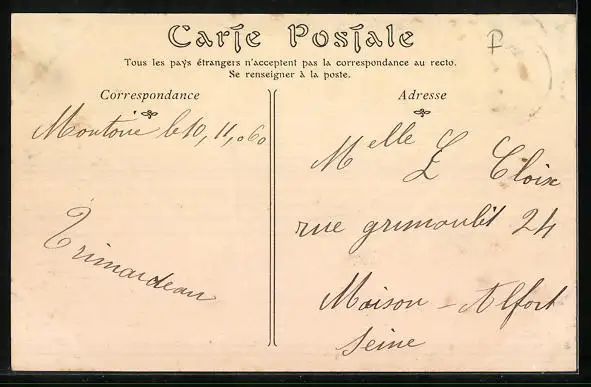 Carte Postale
P
Tous les pays étrangers n'acceptent pas la correspondance au recto.
Se renseigner à la poste.
Correspondance
Montoire le 10, 11,
Trimardeau
Adresse
Melle L Cloix
rue grimoulit 24
Maison-Alfort
Seine